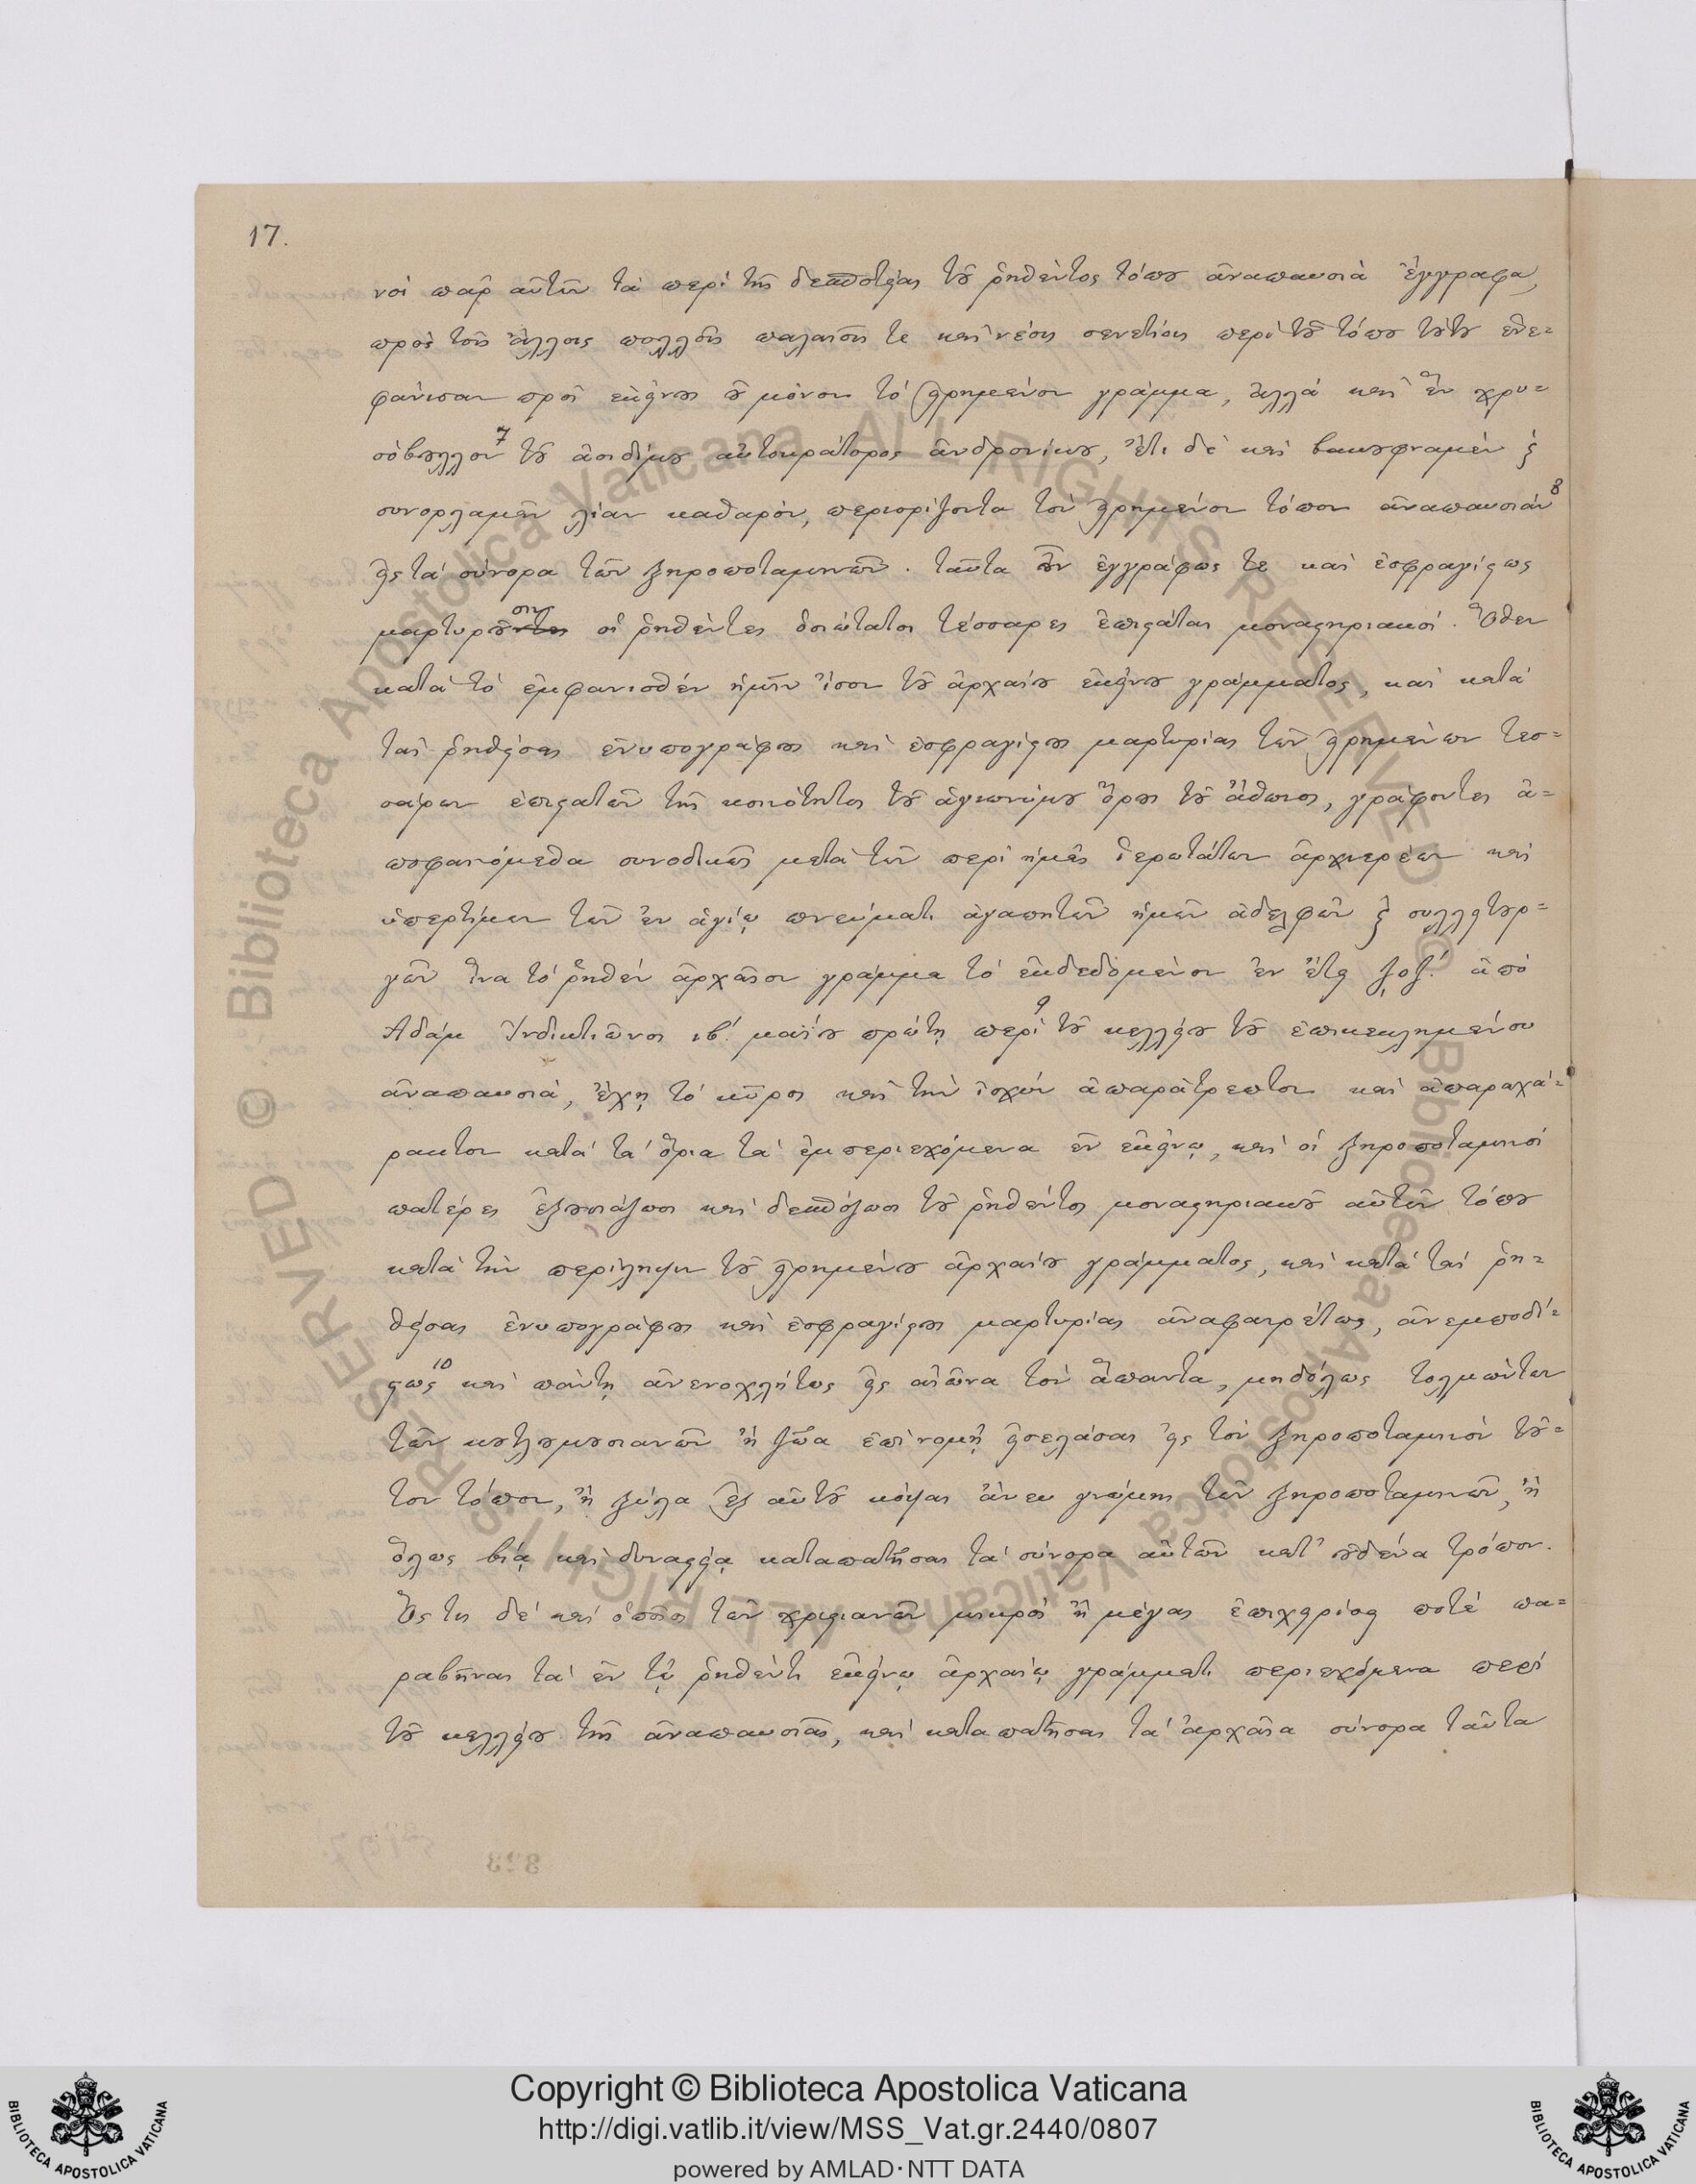 17.
νοὶ παρ' αὐτῶν τὰ περὶ τῆς δεσποτείας τοῦ ῥηθέντος τόπου ἀναπαυσιὰ ἔγγραφα,
πρὸς τοῖς ἄλλοις πολλοῖς παλαιοῖς τε καὶ νέοις σενετίοις περὶ τοῦ τόπου τούτου ἐνε-
φάνισαν πρὸς ἐκείνοις οὐ μόνον τὸ εἰρημένον γράμμα, ἀλλὰ καὶ ἓν χρυ-
σόβουλλον 7 τοῦ ἀοιδίμου αὐτοκράτορος ἀνδρονίκου, ἔτι δὲ καὶ βακουφναμὲν ϗ
συνορλαμὲν λίαν καθαρόν, περιορίζοντα τὸν εἰρημένον τόπον ἀναπαυσιάν 8
εἰς τὰ σύνορα τῶν ξηροποταμηνῶν. ταῦτα οὖν ἐγγράφως τε καὶ ἐσφραγίστως
μαρτυροῦσιν οἱ ῥηθέντες ὁσιώτατοι τέσσαρες ἐπιστάται μοναστηριακοί. Ὅθεν
κατὰ τὸ ἐμφανισθέν ἡμῖν ἴσον τοῦ ἀρχαίου ἐκείνου γράμματος, καὶ κατὰ
τὰς ῥηθείσας ἐνυπογράφους καὶ ἐσφραγίστους μαρτυρίας τῶν εἰρημένων τεσ-
σάρων ἐπιστατῶν τῆς κοινότητος τοῦ ἁγιωνύμου ὄρους τοῦ ἄθωνος, γράφοντες ἀ-
ποφαινόμεθα συνοδικῶς μετὰ τῶν περὶ ἡμᾶς ἱερωτάτων ἀρχιερέων καὶ
ὑπερτίμων τῶν ἐν ἁγίῳ πνεύματι ἀγαπητῶν ἡμῶν ἀδελφῶν ϗ συλλειτουρ-
γῶν ἵνα τὸ ῥηθὲν ἀρχαῖον γράμμα τὸ ἐκδεδομένον ἐν ἔτει ͵ζοζʹ. ἀπὸ
Ἀδάμ Ἰνδικτιῶνος ιβʹ. μαΐου πρώτῃ περὶ 9 τοῦ κελλείου τοῦ ἐπικεκλημένου
ἀναπαυσιὰ, ἔχῃ τὸ κῦρος καὶ τὴν ἰσχὺν ἀπαράτρεπτον καὶ ἀπαραχά-
ρακτον κατὰ τὰ ὅρια τὰ ἐμπεριεχόμενα ἐν ἐκείνῳ, καὶ οἱ ξηροποταμηνοὶ
πατέρες ἐξουσιάζωσι καὶ δεσπόζωσι τοῦ ῥηθέντος μοναστηριακοῦ αὐτῶν τόπου
κατὰ τὴν περίληψιν τοῦ εἰρημένου ἀρχαίου γράμματος, καὶ κατὰ τὰς ῥη-
θείσας ἐνυπογράφους καὶ ἐσφραγίστους μαρτυρίας ἀναφαιρέτως, ἀνεμποδί-
στως 10 καὶ πάντη ἀνενοχλήτως εἰς αἰῶνα τὸν ἅπαντα, μηδόλως τολμώντων
τῶν κουτλουμουσιανῶν ἢ ζῶα ἐπὶ νομῇ εἰσελάσαι εἰς τὸν ξηροποταμηνὸν τοῦ-
τον τόπον, ἢ ξύλα ἐξ αὐτοῦ κόψαι ἄνευ γνώμης τῶν ξηροποταμηνῶν, ἢ
ὅλως βίᾳ καὶ δυναστείᾳ καταπατῆσαι τὰ σύνορα αὐτῶν κατ' οὐδένα τρόπον.
Ὅς τις δὲ καὶ ὁποῖος τῶν χριστιανῶν μικρὸς ἢ μέγας ἐπιχειρίσει ποτὲ πα-
ραβῆναι τὰ ἐν τῷ ῥηθέντι ἐκείνῳ ἀρχαίῳ γράμματι περιεχόμενα περὶ
τοῦ κελλείου τῆς ἀναπαυσιᾶς, καὶ καταπατῆσαι τὰ ἀρχαῖα σύνορα ταῦτα
© Biblioteca Apostolica Vaticana ALL RIGHTS RESERVED
© Biblioteca Apostolica Vaticana ALL RIGHTS RESERVED
BIBLIOTECA APOSTOLICA VATICANA
Copyright © Biblioteca Apostolica Vaticana
http://digi.vatlib.it/view/MSS_Vat.gr.2440/0807
powered by AMLAD·NTT DATA
BIBLIOTECA APOSTOLICA VATICANA